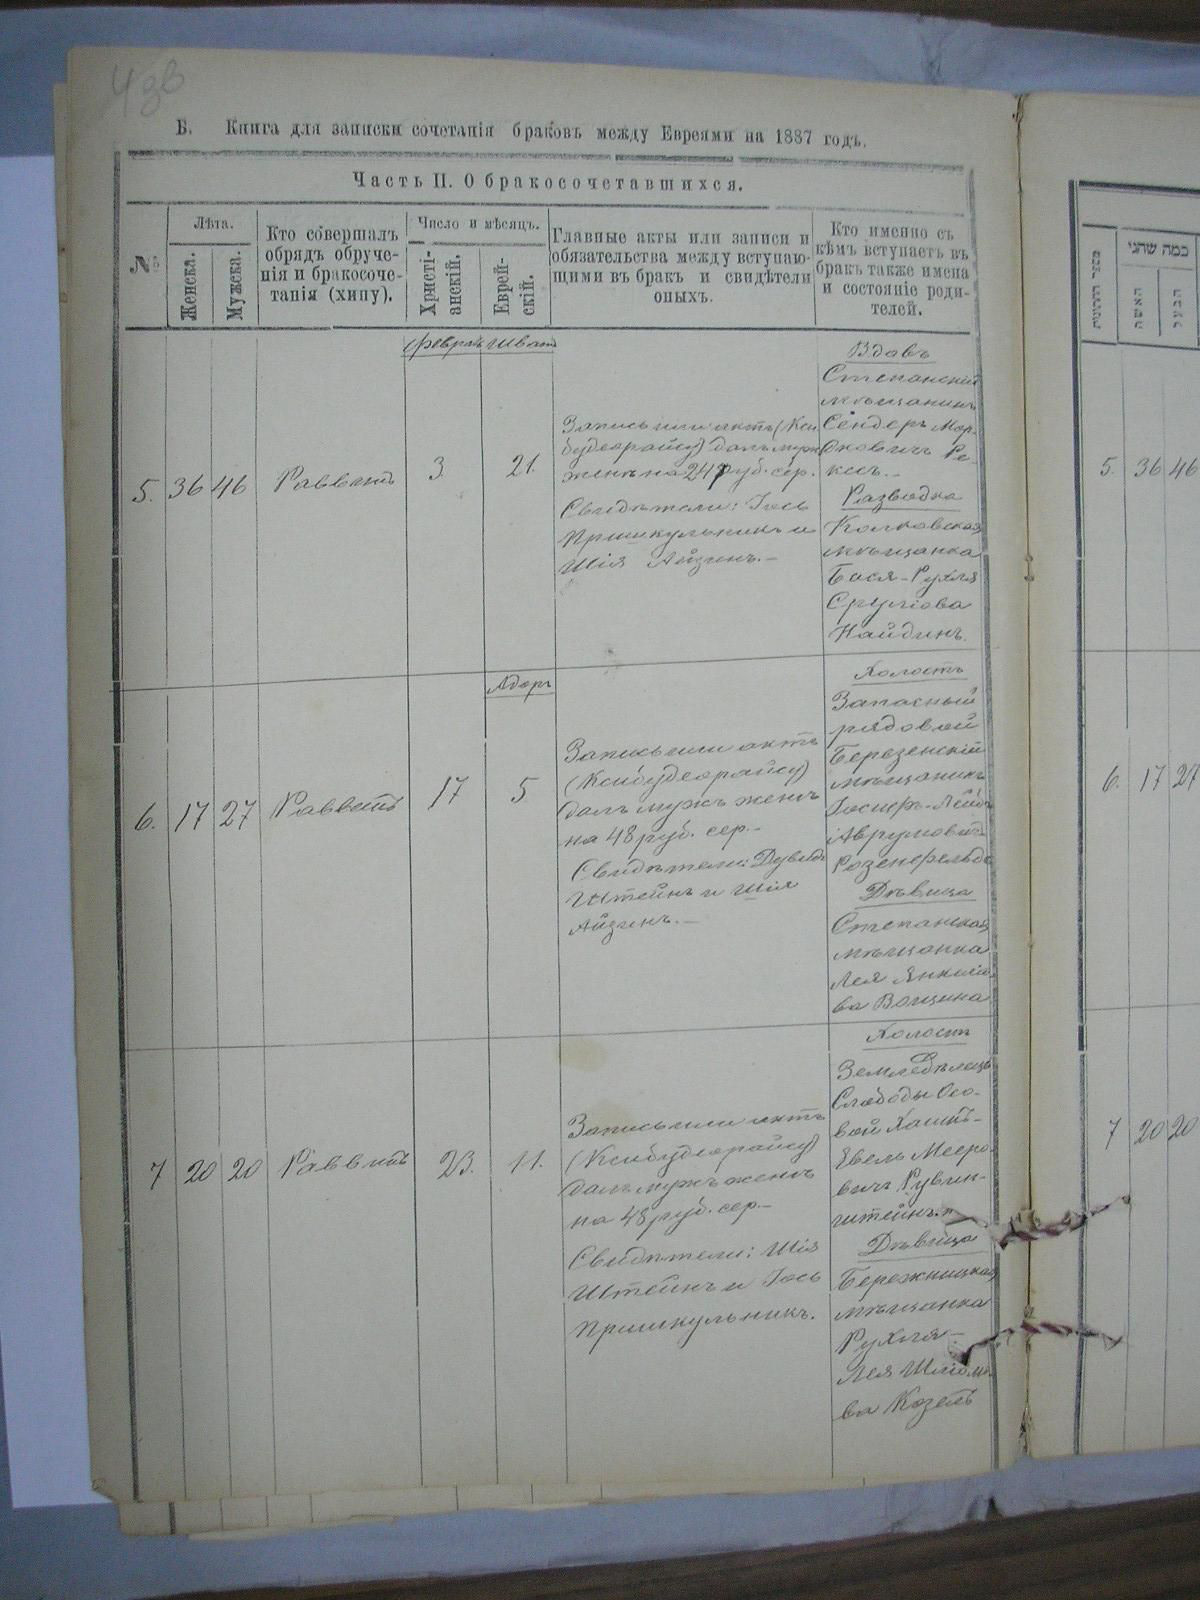 43в
Б. Книга для записки сочетанія браковъ между Евреями на 1887 годъ.
Часть II. О бракосочетавшихся.
№
Лѣта.
Женска.
Мужска.
Кто совершалъ
обрядъ обруче-
нія и бракосоче-
танія (хипу).
Число и мѣсяцъ.
Христі-
анскій.
Еврей-
скій.
Главные акты или записи и
обязательства между вступаю-
щими въ бракъ и свидѣтели
оныхъ.
Кто именно съ
кѣмъ вступаетъ въ
бракъ также имена
и состояніе роди-
телей.
февраль Шват
5. 36 46 Раввинъ 3 21.
Запись или актъ (Кси
будеорайсу) далъ мужъ
женѣ на 24 руб. сер.
Свидѣтели: Іось
Пришкульникъ и
Шія Айзинъ.-
Вдовъ
Степанскій
мѣщанинъ
Сендеръ Мор-
дковичъ Ре-
кесъ.-
Разводка
Колковская
мѣщанка
Бася-Рухля
Сруліова
Найдинъ.
Адоръ
6. 17 27 Раввинъ 17 5
Запись или актъ
(Ксибудеорайсу)
далъ мужъ женѣ
на 48 руб. сер.-
Свидѣтели: Дувидъ
Штейнъ и Шія
Айзинъ.-
Холостъ
Запасный
рядовой
Березенскій
мѣщанинъ
Іосиеръ-Лейбъ
Аврумовичъ
Розенфельдъ
Дѣвица
Степанская
мѣщанка
Лея Янкеліо-
ва Вощина
7 20 20 Раввинъ 23. 11.
Запись или актъ
(Ксибудеорайсу)
далъ мужъ женѣ
на 48 руб. сер.-
Свидѣтели: Шія
Штейнъ и Іось
Пришкульникъ.
Холостъ
Земледѣлецъ
Слободы Осо-
вой Хаимъ-
Евель Мееро-
вичъ Рувин-
штейнъ.
Дѣвица
Бережницкая
мѣщанка
Рухля-
Лея Шліомо-
ва Козелъ
כמה שהני
האשה
הבעל
5. 36 46
6. 17 27
7 20 20